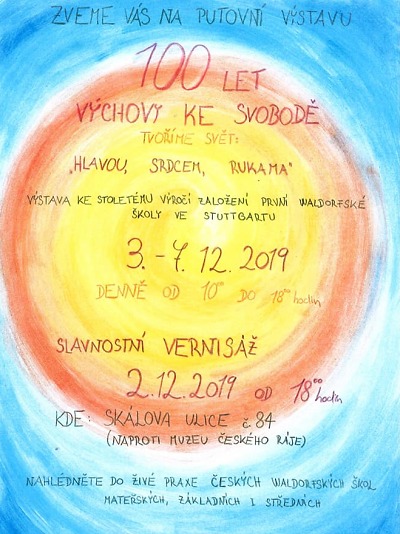 ZVEME VÁS NA PUTOVNÍ VÝSTAVU
100 LET
VÝCHOVY KE SVOBODĚ
TVOŘÍME SVĚT:
„HLAVOU, SRDCEM, RUKAMA"
VÝSTAVA KE STOLETÉMU VÝROČÍ ZALOŽENÍ PRVNÍ WALDORFSKÉ
ŠKOLY VE STUTTGARTU
3. - 7. 12. 2019
DENNĚ OD 10⁰⁰ DO 18⁰⁰ hodin
SLAVNOSTNÍ VERNISÁŽ
2.12.2019 OD 18⁰⁰ hodin
KDE: SKÁLOVA ULICE č. 84
(NAPROTI MUZEU ČESKÉHO RÁJE)
NAHLÉDNĚTE DO ŽIVÉ PRAXE ČESKÝCH WALDORFSKÝCH ŠKOL
MATEŘSKÝCH, ZÁKLADNÍCH I STŘEDNÍCH